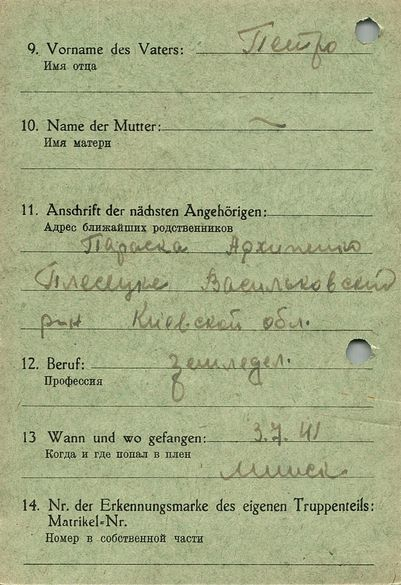 9. Vorname des Vaters: Петро
Имя отца
10. Name der Mutter: ~
Имя матери
11. Anschrift der nächsten Angehörigen:
Адрес ближайших родственников
Параска Архипенко
Плесецке Васильковский
р-н Киевской обл.
12. Beruf: земледел.
Профессия
13 Wann und wo gefangen: 3.7.41
Когда и где попал в плен
Минск
14. Nr. der Erkennungsmarke des eigenen Truppenteils:
Matrikel-Nr.
Номер в собственной части